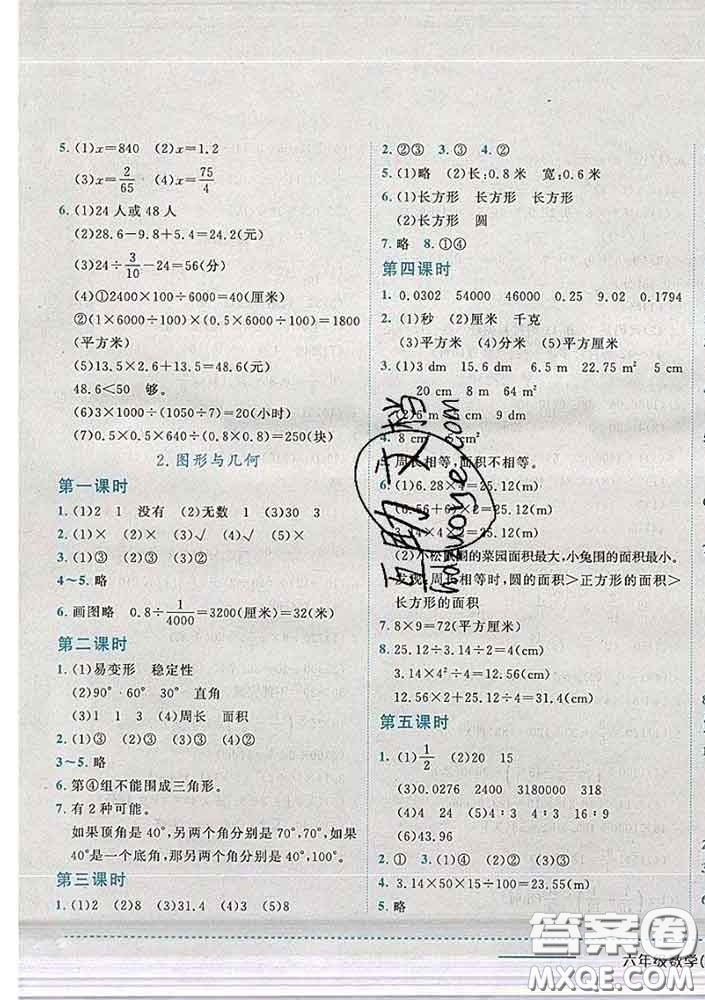 5. (1)x=840 (2)x=1.2
(3)x=2/65 (4)x=75/4
6. (1)24 人或 48 人
(2)28.6-9.8+5.4=24.2(元)
(3)24÷3/10-24=56(分)
(4)①2400×100÷6000=40(厘米)
②(1×6000÷100)×(0.5×6000÷100)=1800
(平方米)
(5)13.5×2.6+13.5=48.6(元)
48.6<50 够。
(6)3×1000÷(1050÷7)=20(小时)
(7)0.5×0.5×200÷(0.5×0.4)=250(块)
2.图形与几何
第一课时
1. (1)2 1 没有 (2)无数 1 (3)30 3
2. (1)× (2)× (3)√ (4)√ (5)×
3. (1)③ (2)③ (3)①
4~5. 略
6. 画图略 0.8÷1/4000=3200(厘米)=32(米)
第二课时
1. (1)易变形 稳定性
(2)90° 60° 30° 直角
(3)1 1 3 (4)周长 面积
2. (1)① (2)③ (3)③ (4)③
3~5. 略
6. 第④组不能围成三角形。
7. 有 2 种可能。
如果顶角是 40°,另两个角分别是 70°,70°;如果
40°是一个底角,那另两个角分别是 40°,100°。
第三课时
1. (1)2 (2)8 (3)31.4 (3)5 (4)8
2. ②③ 3. ③ 4. ②
5. (1)略 (2)长:0.8 米 宽:0.6 米
6. (1)长方形 长方形 长方形
(2)长方形 圆
7. 略 8. ①④
第四课时
1. 0.0302 54000 46000 0.25 9.02 0.1794
2. (1)秒 (2)厘米 千克
(3)平方厘米 (4)分米 (5)平方米
3. (1)3 dm 15.7 dm 6.5 m 22.75 m²
20 cm 8 m 64 m²
(2)6 m 5 cm 9 dm
4. 8 cm
5. 周长相等,面积不相等。
6. (1)6.28×4=25.12(m)
(6.56+6)×2=25.12(m)
3.14×4×2=25.12(m)
(2)小松鼠围的菜园面积最大,小兔围的面积最小。
发现:周长相等时,圆的面积>正方形的面积>
长方形的面积
7. 8×9=72(平方厘米)
8. 25.12÷3.14÷2=4(cm)
3.14×4²÷4=12.56(cm)
12.56×2+25.12÷4=31.4(cm)
第五课时
1. (1)1/2 (2)20 15
(3)0.0276 2400 3180000 318
(4)4 24 (5)4 9:4
(6)43.96
2. ① 3. (1)④ (2)② (3)②
4. 3.14×50×15÷100=23.55(m)
5. 略
互助文档
hdzuoye.com
答案圈
MXQE.COM
六年级数学(